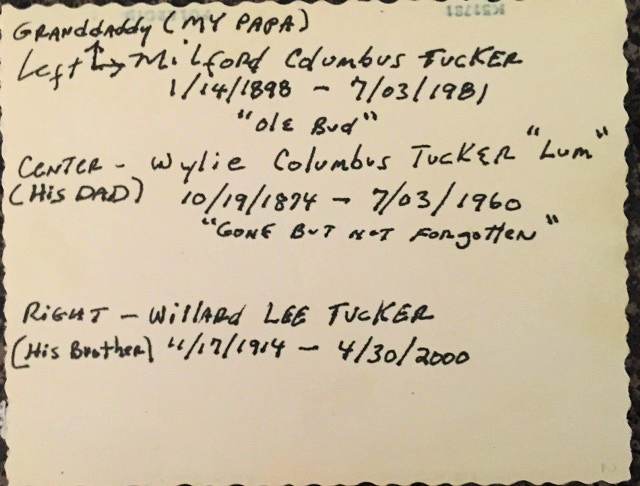 GRANddAddy (MY PAPA)
Left → Milford Columbus TUCKER
1/14/1898 - 7/03/1981
"Ole Bud"
CENTER - Wylie Columbus TUCKER "Lum"
(His DAD) 10/19/1874 - 7/03/1960
"GONE BUT NOT FORGOTTEN"
RIGHT - Willard LEE TUCKER
(His Brother) 11/17/1914 - 4/30/2000